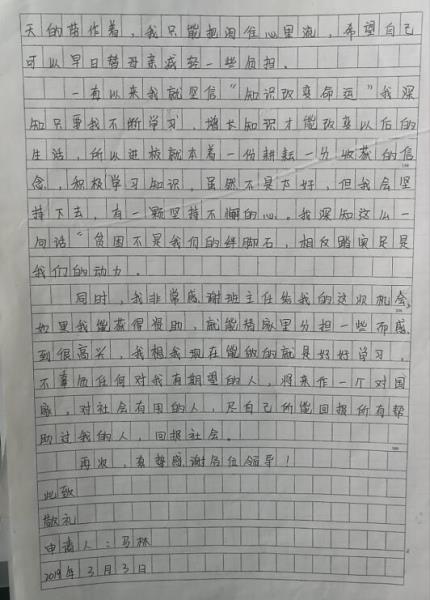 天的劳作着，我只能把泪往心里流，希望自己
可以早日替母亲减轻一些负担。
一直以来我就坚信“知识改变命运”我深
知只要我不断学习，增长知识才能改变以后的
生活，所以进校就本着一份耕耘一分收获的信
念，积极学习知识，虽然不是太好，但我会坚
持下去，有一颗坚持不懈的心。我深知这么一
句话“贫困不是我们的绊脚石，相反踏实是
我们的动力。
同时，我非常感谢班主任给我的这次机会，
如果我能获得资助，就能替家里分担一些而感
到很高兴，我想我现在能做的就是好好学习，
不辜负任何对我有期望的人，将来作一个对国
家，对社会有用的人，尽自己所能回报所有帮
助过我的人，回报社会。
再次，真挚感谢各位领导！
此致
敬礼
申请人：马林
2019年3月3日